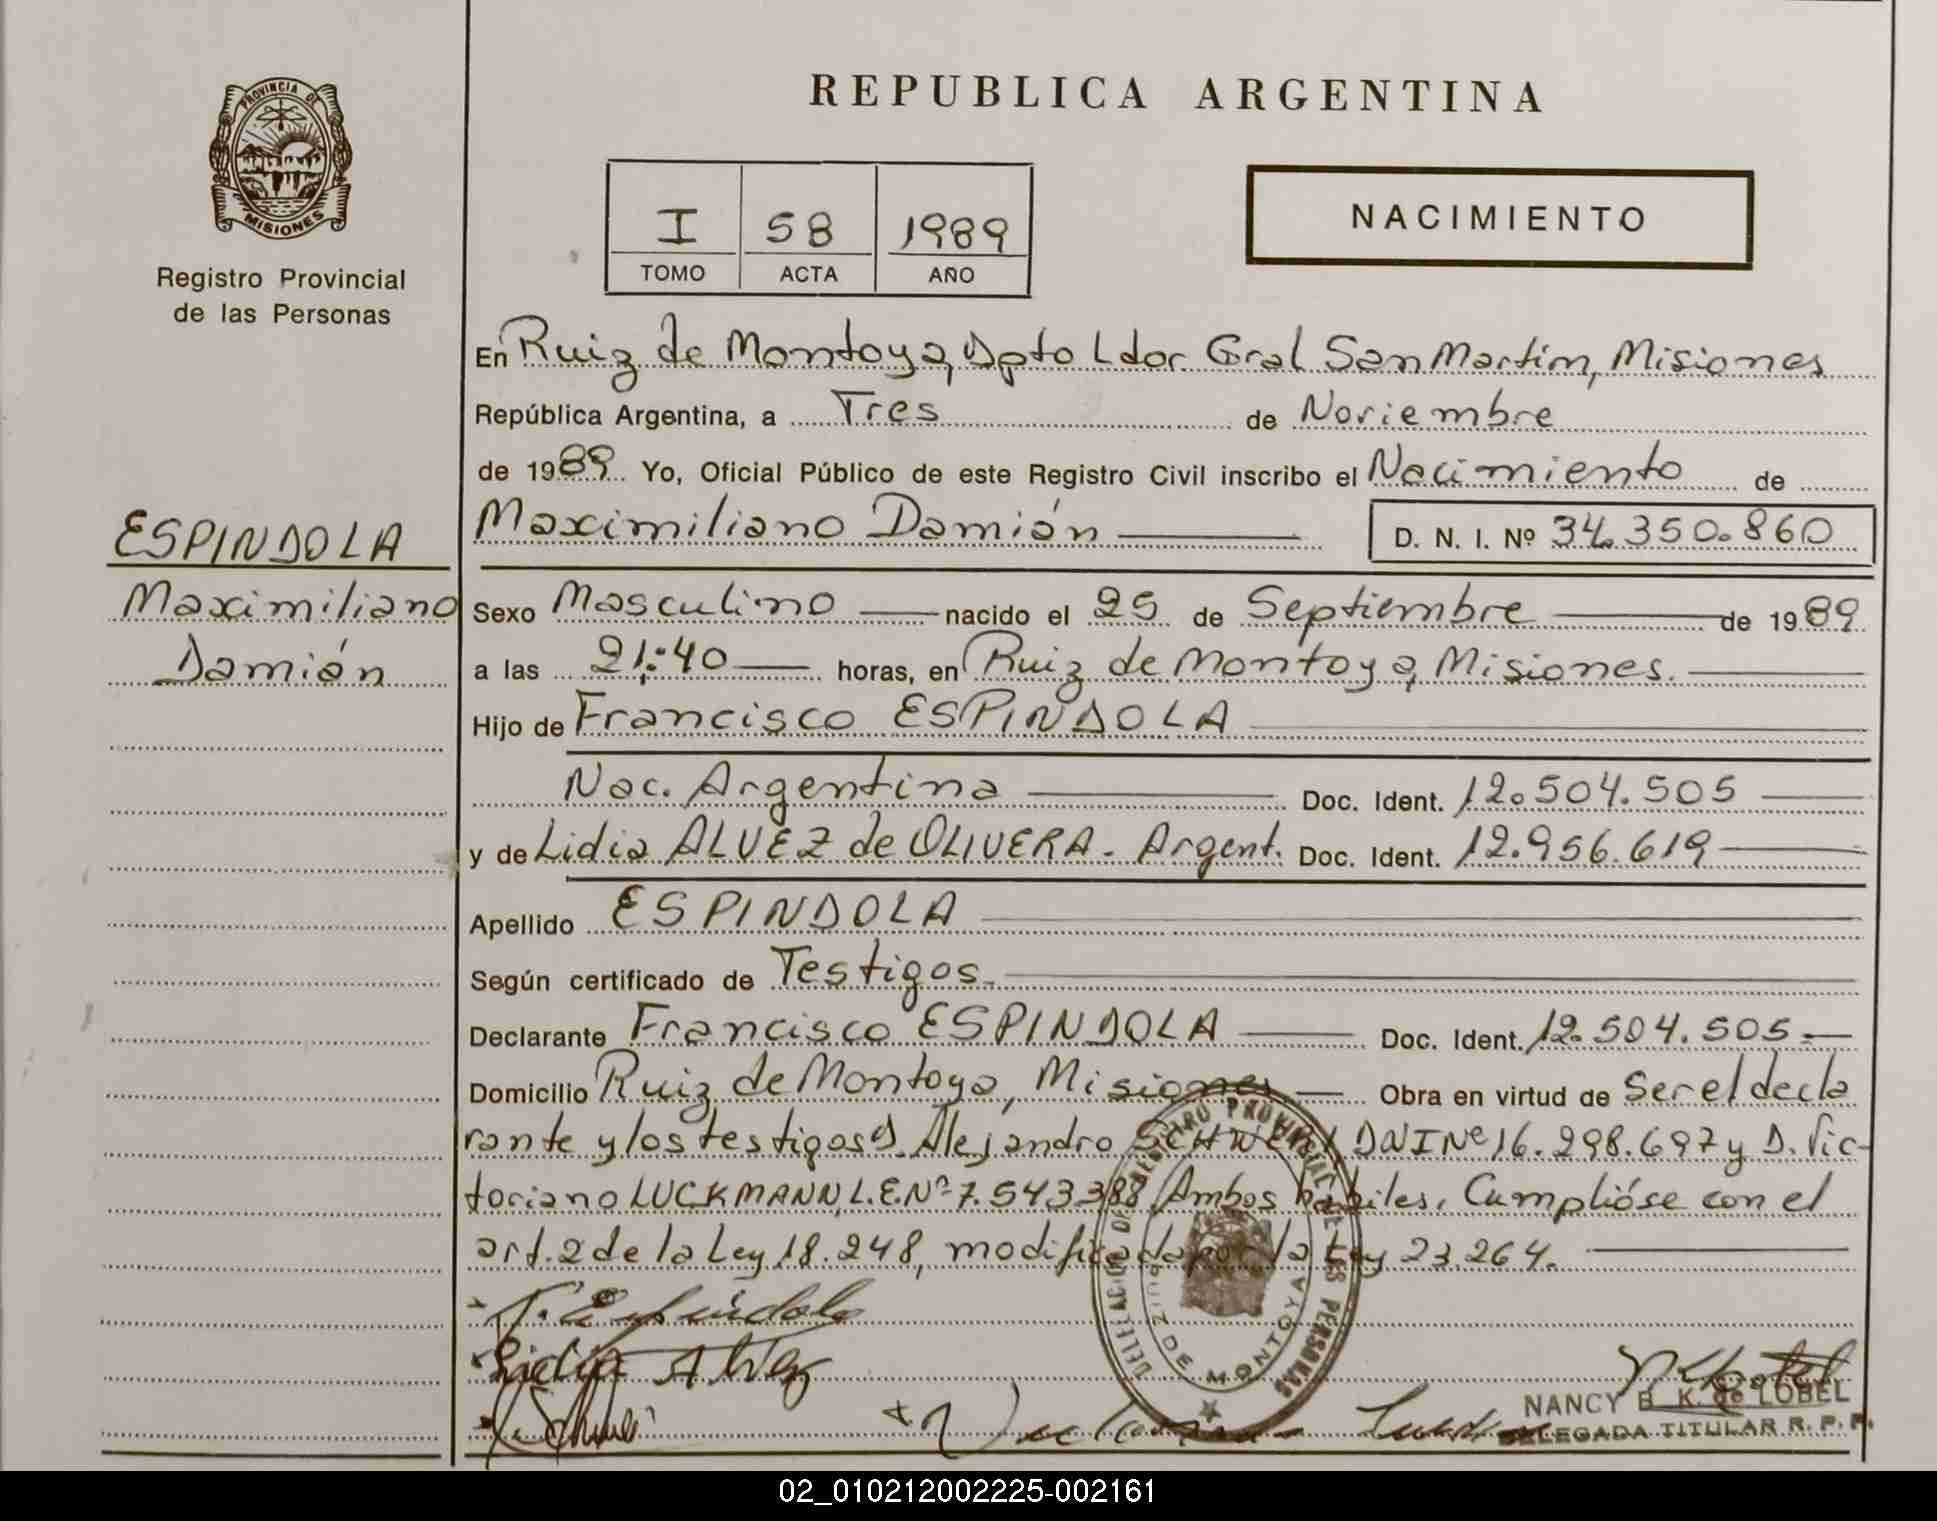 PROVINCIA DE
MISIONES
Registro Provincial
de las Personas
ESPINDOLA
Maximiliano
Damián
REPUBLICA ARGENTINA
I 58 1989
TOMO ACTA AÑO
NACIMIENTO
En Ruiz de Montoya, Dpto Ldor. Gral San Martín, Misiones
República Argentina, a Tres de Noviembre
de 1989 Yo, Oficial Público de este Registro Civil inscribo el Nacimiento de
Maximiliano Damián D. N. I. Nº 34.350.860
Sexo Masculino nacido el 25 de Septiembre de 1989
a las 21:40 horas, en Ruiz de Montoya, Misiones.
Hijo de Francisco ESPINDOLA
Nac. Argentina Doc. Ident. 12.504.505
y de Lidia ALVEZ de OLIVERA. Argent. Doc. Ident. 12.956.619
Apellido ESPINDOLA
Según certificado de Testigos.
Declarante Francisco ESPINDOLA Doc. Ident. 12.504.505
Domicilio Ruiz de Montoya, Misiones Obra en virtud de ser el decla
rante y los testigos D. Alejandro DNI Nº 16.298.697 y D. Vic-
toriano LUCKMANN, L.E. Nº 7.543.388 Ambos habiles. Cumplióse con el
art. 2 de la Ley 18.248, modificada por la Ley 23.264.
Lidia Alvez
DELEGACION DE REGISTRO PROVINCIAL DE LAS PERSONAS
RUIZ DE MONTOYA
NANCY B. K. de LOBEL
DELEGADA TITULAR R. P. P.
02_010212002225-002161